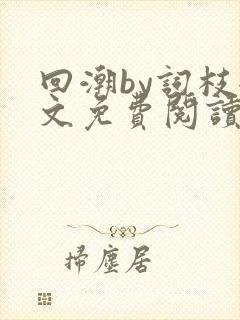 回潮by詞枝
文免費閱讀
掃塵居